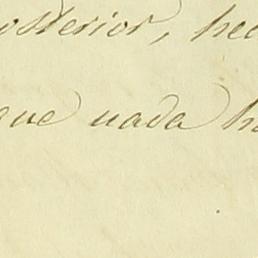 posterior, hec
que nada ha